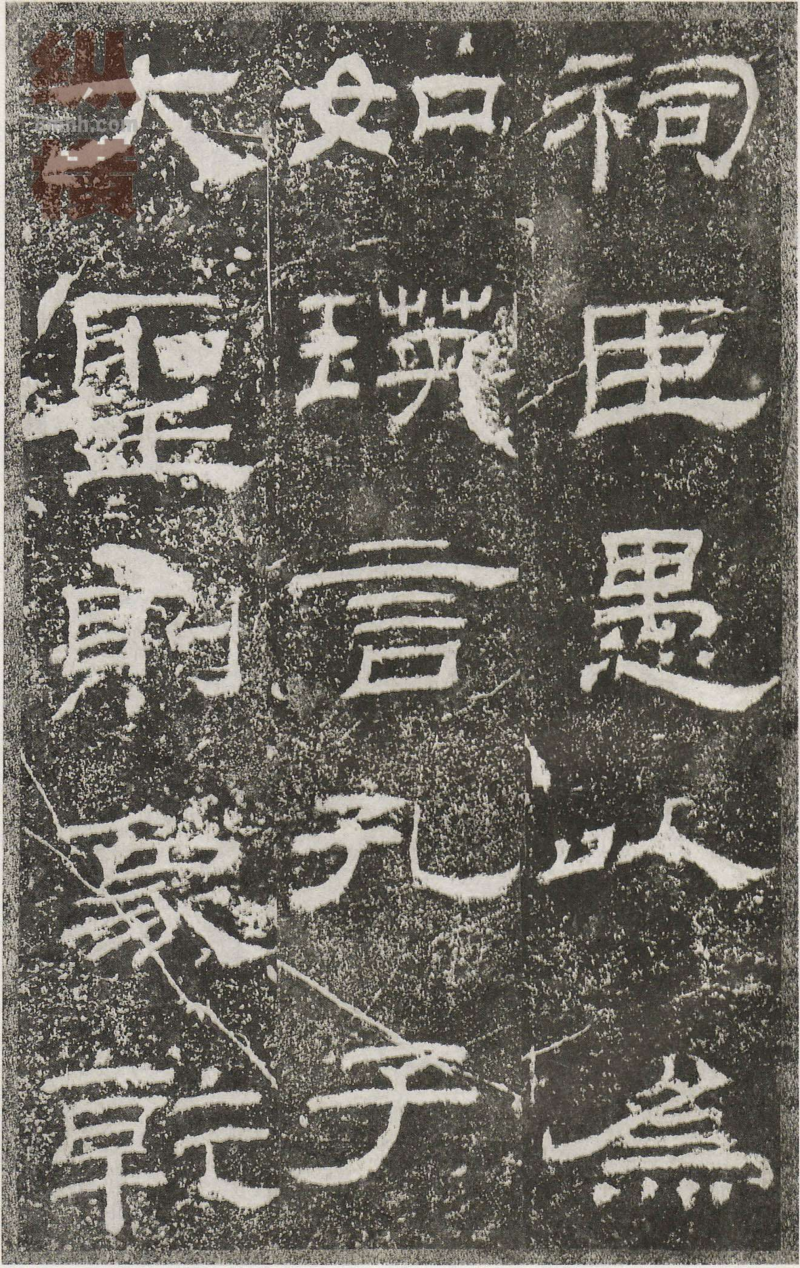 祠臣愚以為
如瑛言孔子
大聖則象乾